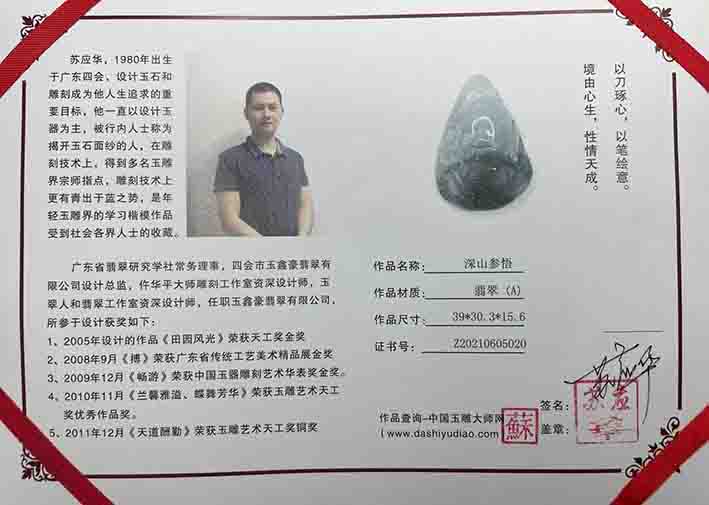 苏应华，1980年出生
于广东四会、设计玉石和
雕刻成为他人生追求的重
要目标，他一直以设计玉
器为主，被行内人士称为
揭开玉石面纱的人，在雕
刻技术上，得到多名玉雕
界宗师指点，雕刻技术上
更有青出于蓝之势，是年
轻玉雕界的学习楷模作品
受到社会各界人士的收藏。
广东省翡翠研究学社常务理事，四会市玉鑫豪翡翠有
限公司设计总监，仵华平大师雕刻工作室资深设计师，玉
翠人和翡翠工作室资深设计师，任职玉鑫豪翡翠有限公司，
所参于设计获奖如下：
1、2005年设计的作品《田园风光》荣获天工奖金奖
2、2008年9月《搏》荣获广东省传统工艺美术精品展金奖
3、2009年12月《畅游》荣获中国玉器雕刻艺术华表奖金奖。
4、2010年11月《兰馨雅溢、蝶舞芳华》荣获玉雕艺术天工
奖优秀作品奖。
5、2011年12月《天道酬勤》荣获玉雕艺术天工奖铜奖
以刀琢心，以笔绘意。
境由心生，性情天成。
作品名称：深山参悟
作品材质：翡翠（A）
作品尺寸：39*30.3*15.6
证书号：Z20210605020
作品查询-中国玉雕大师网
（www.dashiyudiao.com）
蘇
签名：苏应华
盖章：